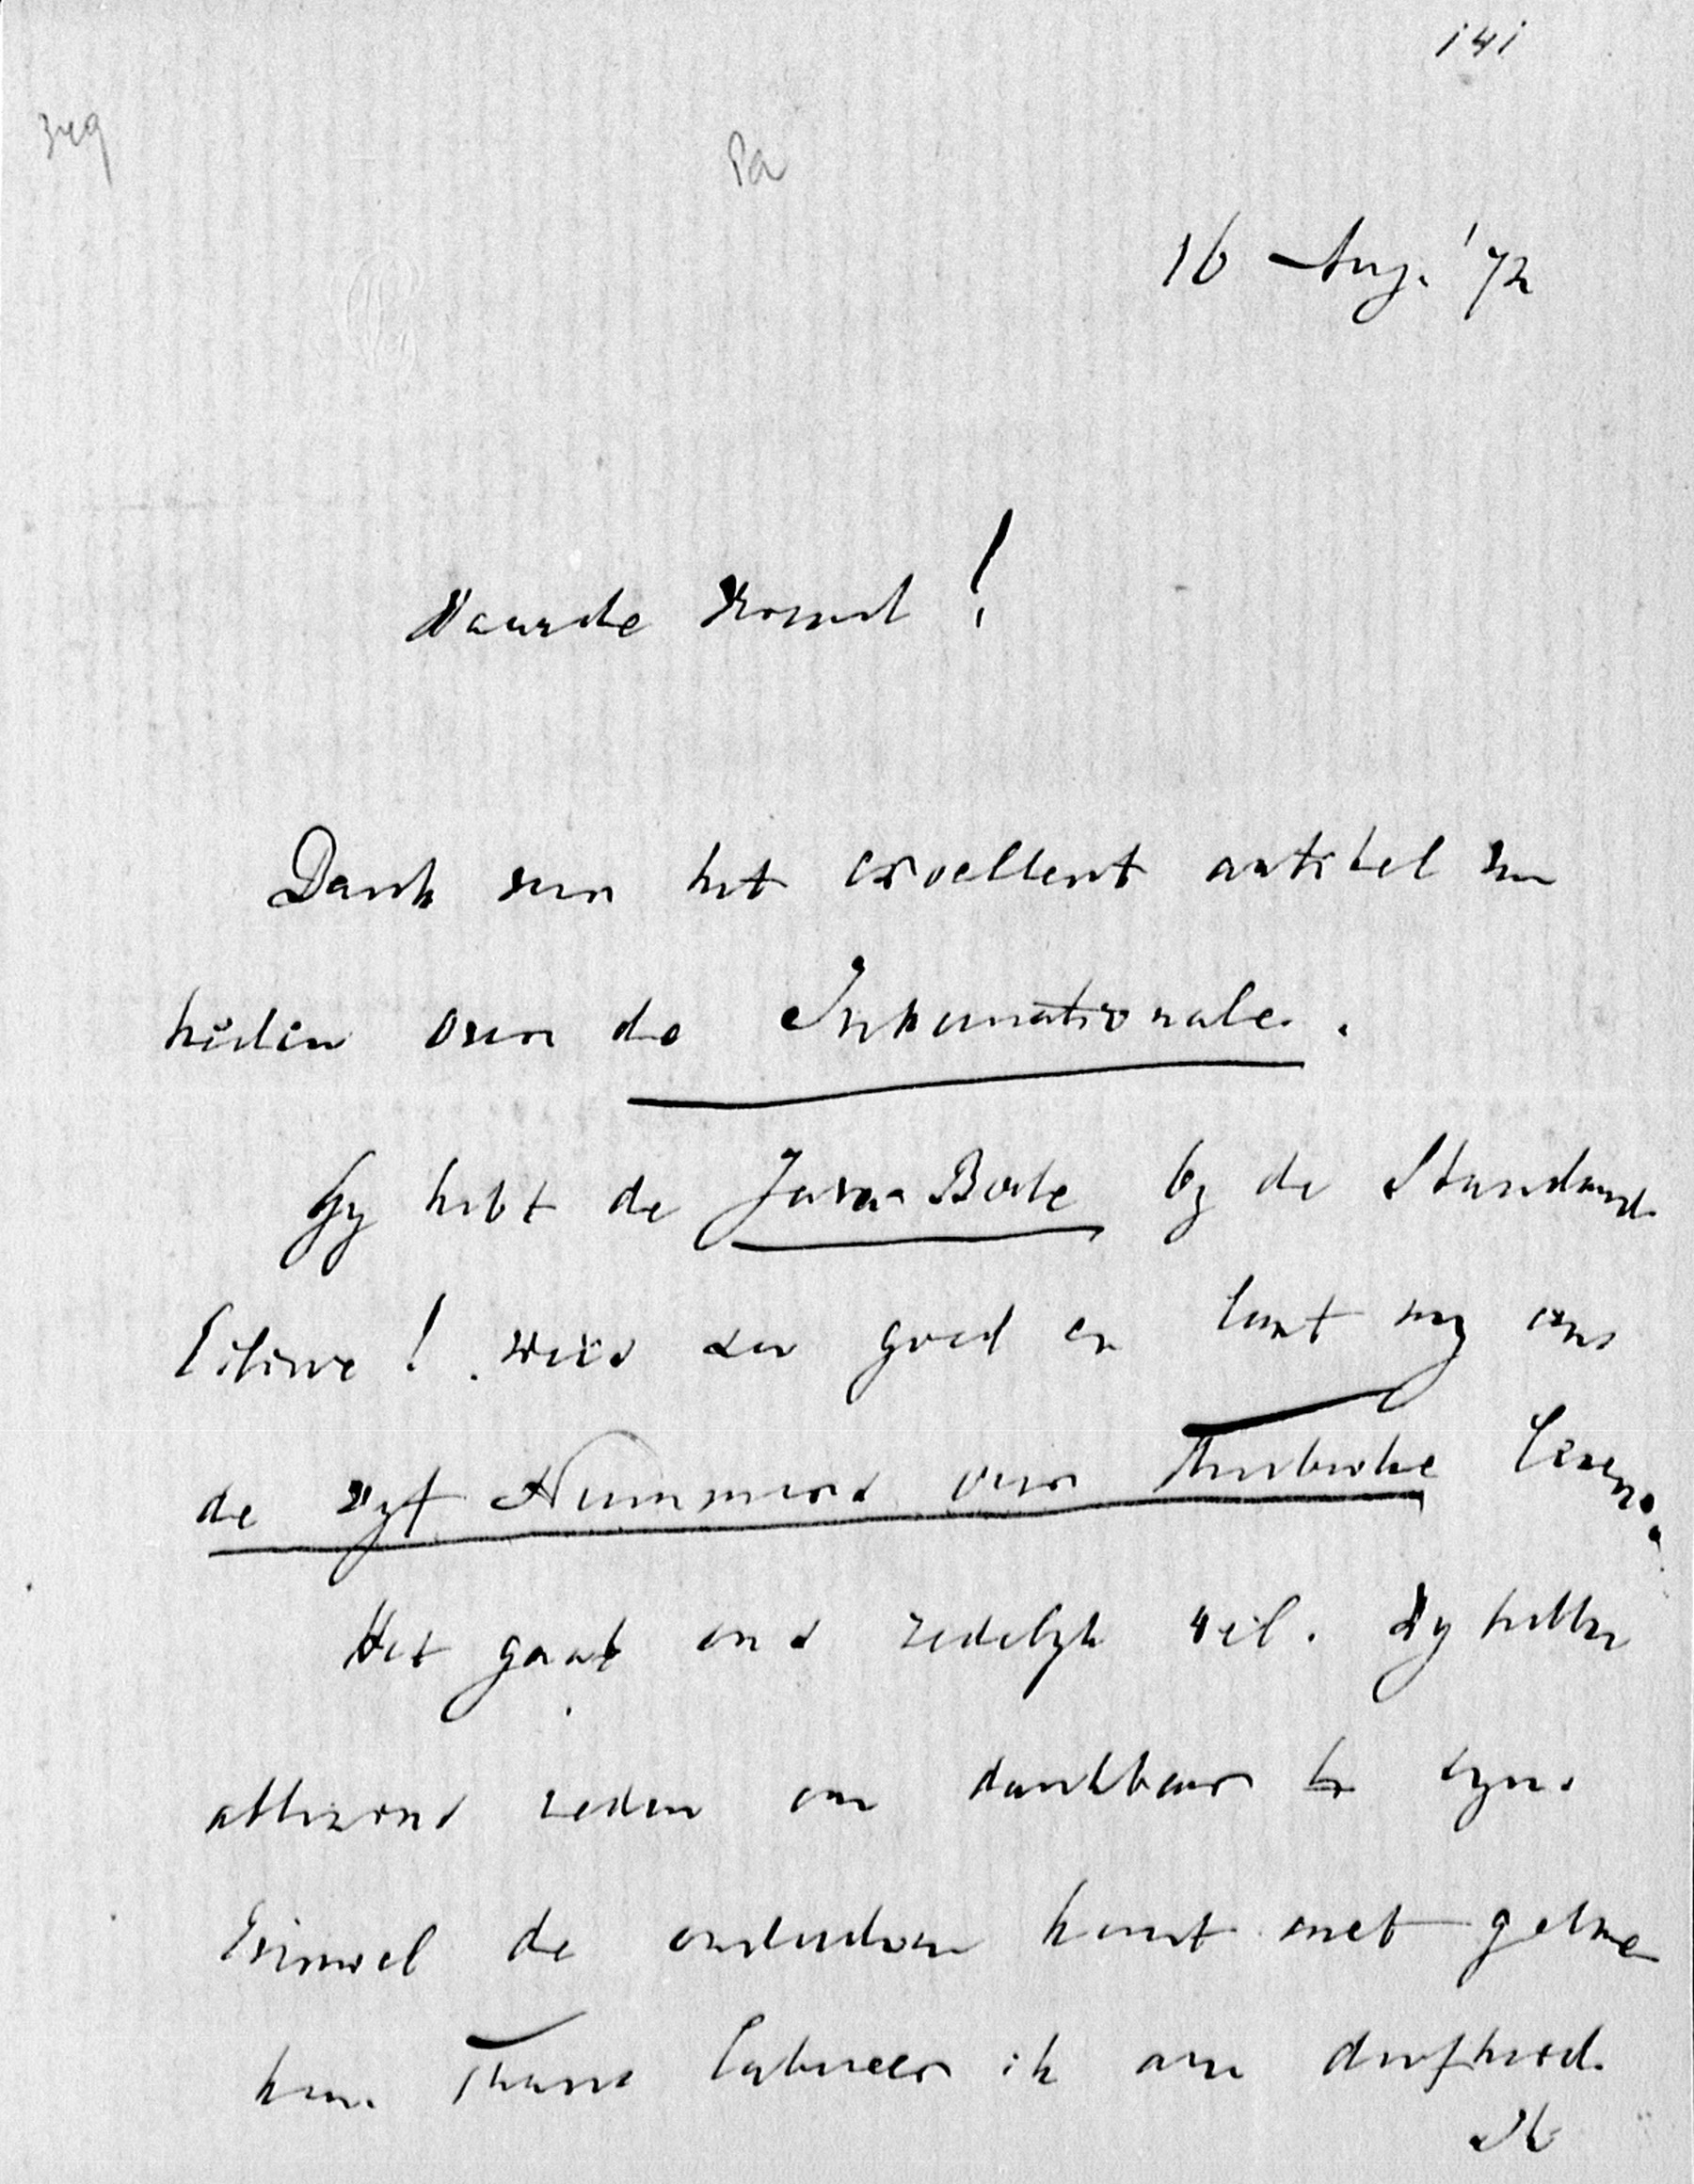 141
349
Pa
16 Aug. '72
Waarde vriend!
Dank voor het excellent artikel van
heden over de Internationale.
Gy hebt de Java-Bode by de Standaard
. Wees zoo goed en laat my eens
de vyf Nummers over Thorbecke lezen.
Het gaat ons redelyk wel. Wy hebben
alleszins reden om dankbaar te zyn.
de ouderdom komt met gebre
ken. Thans laboreer ik aan doofheid.
Ik